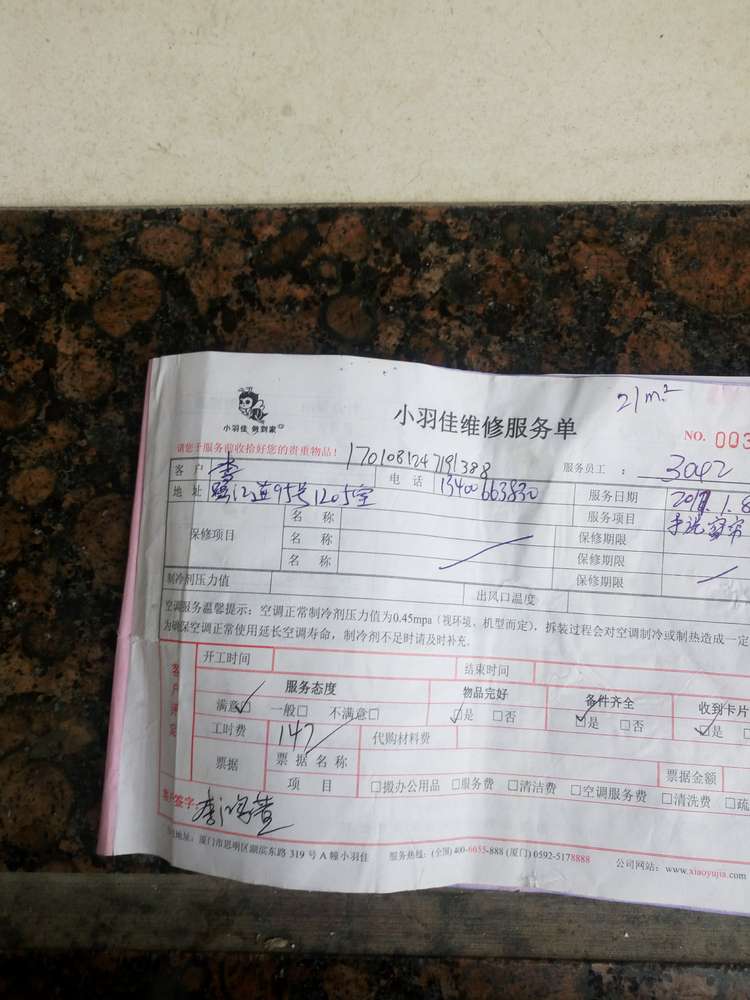 21m²
小羽佳维修服务单
小羽佳 努到家
NO. 003
请您于服务前收拾好您的贵重物品！
1701081247191388
客户 李 电话 13400663830 服务员工： 3042
地址 鹭江道95号1205室 服务日期 2017.1.8
服务项目
保修项目 名称 保修期限
名称 保修期限
名称 保修期限
制冷剂压力值 出风口温度
空调服务温馨提示：空调正常制冷剂压力值为0.45mpa（视环境、机型而定），拆装过程会对空调制冷或制热造成一定
为确保空调正常使用延长空调寿命，制冷剂不足时请及时补充.
客户
开工时间 结束时间
服务态度 物品完好 备件齐全 收到卡片
满意☑ 一般□ 不满意□ ☑是 □否 ☑是 □否 ☑是
工时费 147 代购材料费
票据 票据名称 票据金额
项目 □搬办公用品 □服务费 □清洁费 □空调服务费 □清洗费 □疏
客户签字
地址：厦门市思明区湖滨东路 319 号 A 幢小羽佳 服务热线：(全国) 400-6055-888 (厦门) 0592-5178888 公司网站：www.xiaoyujia.com